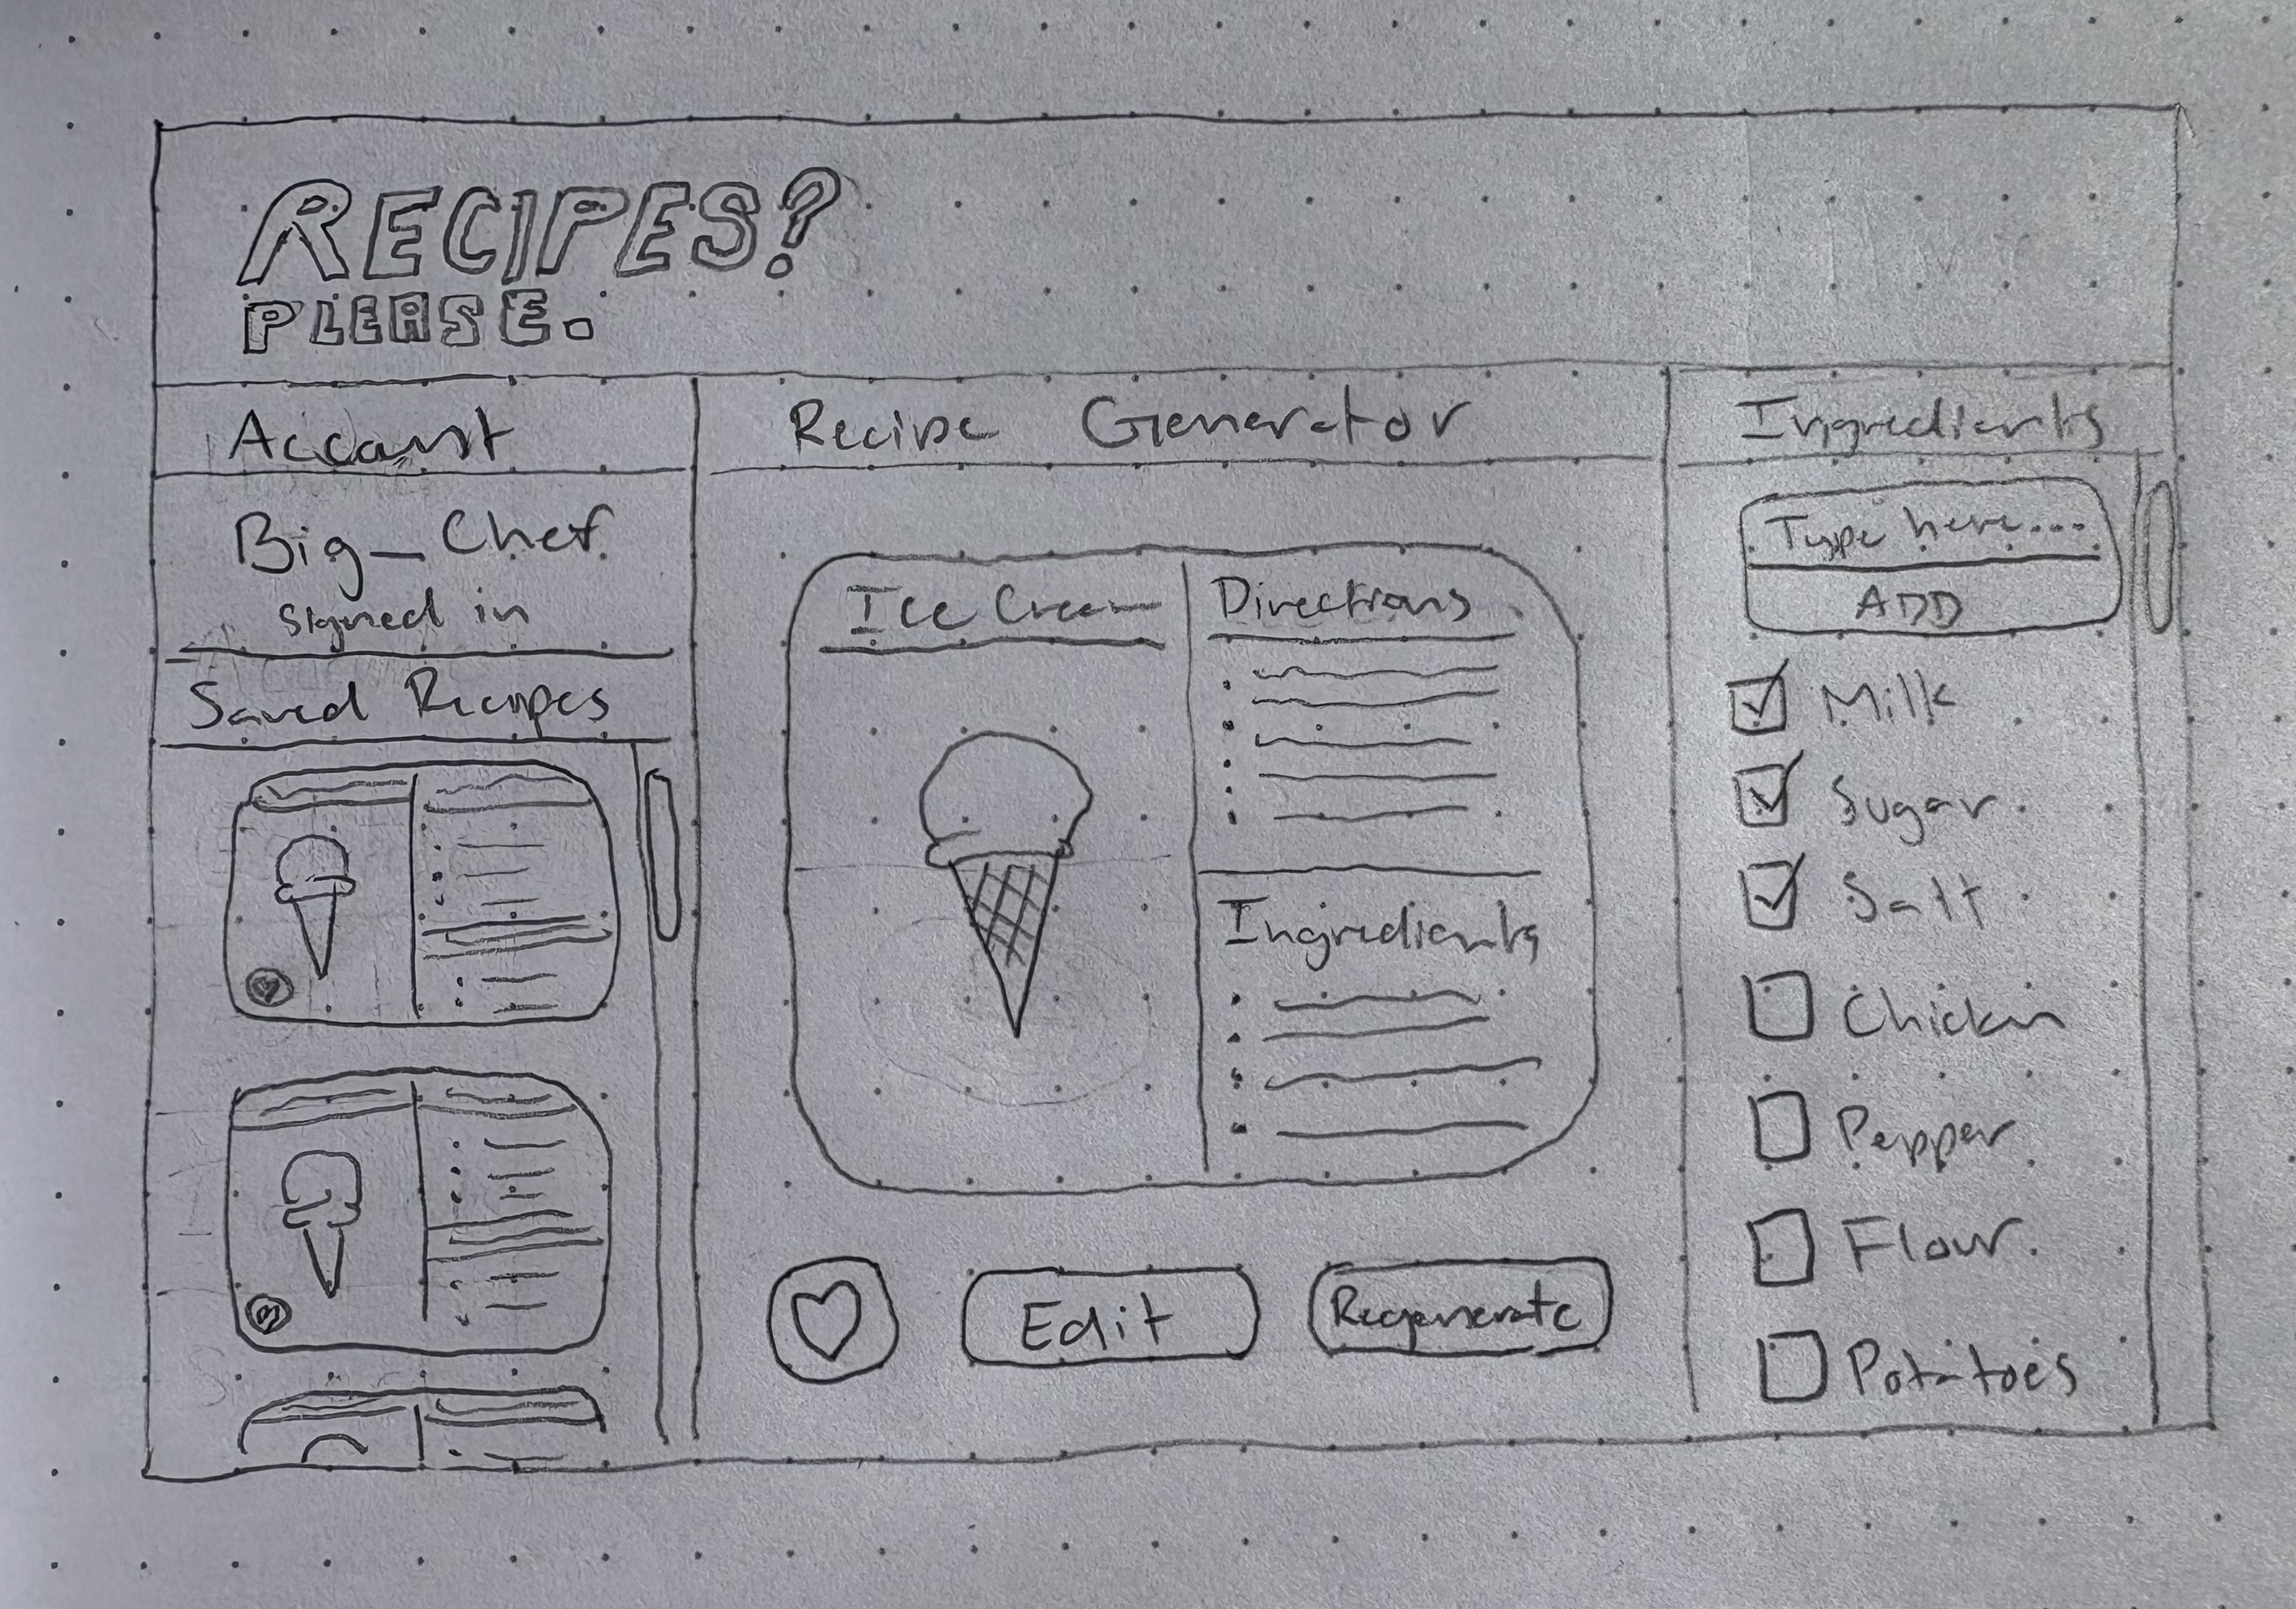 RECIPES?
PLEASE.
Account
Big_Chef
signed in
Saved Recipes
Recipe Generator
Ice Cream
Directions
Ingredients
Edit
Regenerate
Ingredients
Type here...
ADD
Milk
Sugar
Salt
Chicken
Pepper
Flour
Potatoes